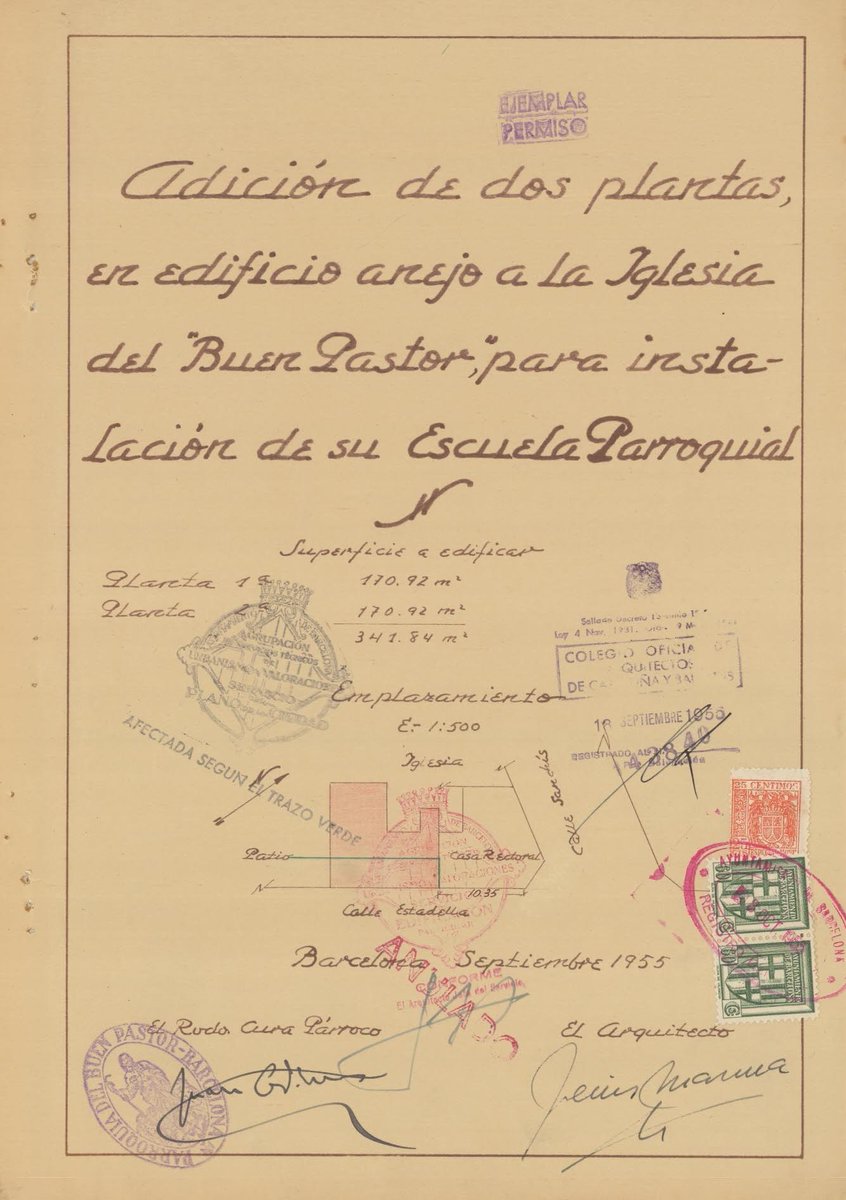 EJEMPLAR
PERMISO
Adición de dos plantas,
en edificio anejo a la Iglesia
del "Buen Pastor," para insta-
lación de su Escuela Parroquial
Superficie a edificar
Planta 1ª 170.92 m²
Planta 2ª 170.92 m²
341.84 m²
AGRUPACIÓN
URBANISMO VALORACIONES
SERVICIO
PLANO DE LA CIUDAD
COLEGIO OFICIAL DE
DE CATALUÑA Y BALEARES
Emplazamiento
E.- 1:500
SEPTIEMBRE 1955
REGISTRADO AL
AFECTADA SEGUN EL TRAZO VERDE
Iglesia
Calle Sanchís
Patio
Casa Rectoral
10.35
Calle Estadella
25 CENTIMOS
AYUNTAMIENTO DE BARCELONA
60 C
60 C
Barcelona. Septiembre 1955
ANULADO
CONFORME
El Arquitecto Jefe del Servicio
El Rvdo. Cura Párroco
El Arquitecto
PARROQUIA DEL BUEN PASTOR-BARCELONA